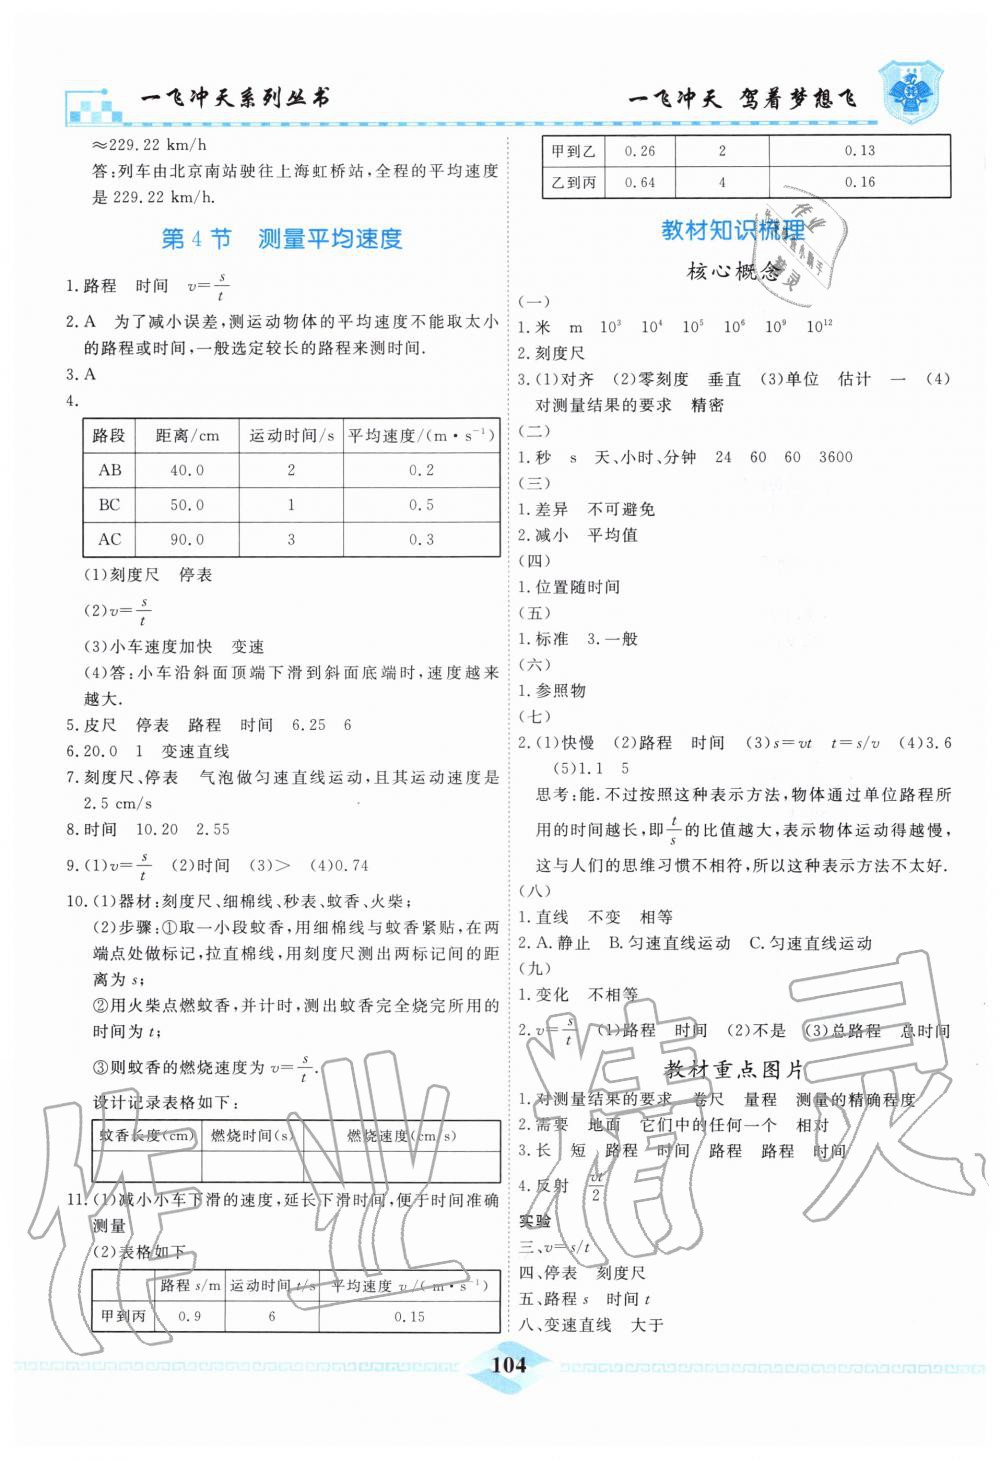 一飞冲天系列丛书
一飞冲天 驾着梦想飞
≈229.22 km/h
答:列车由北京南站驶往上海虹桥站,全程的平均速度
是 229.22 km/h.
第 4 节 测量平均速度
1.路程 时间 v=s/t
2.A 为了减小误差,测运动物体的平均速度不能取太小
的路程或时间,一般选定较长的路程来测时间.
3.A
4.
路段 距离/cm 运动时间/s 平均速度/(m·s⁻¹)
AB 40.0 2 0.2
BC 50.0 1 0.5
AC 90.0 3 0.3
(1)刻度尺 停表
(2)v=s/t
(3)小车速度加快 变速
(4)答:小车沿斜面顶端下滑到斜面底端时,速度越来
越大.
5.皮尺 停表 路程 时间 6.25 6
6.20.0 1 变速直线
7.刻度尺、停表 气泡做匀速直线运动,且其运动速度是
2.5 cm/s
8.时间 10.20 2.55
9.(1)v=s/t (2)时间 (3)> (4)0.74
10.(1)器材:刻度尺、细棉线、秒表、蚊香、火柴;
(2)步骤:①取一小段蚊香,用细棉线与蚊香紧贴,在两
端点处做标记,拉直棉线,用刻度尺测出两标记间的距
离为 s;
②用火柴点燃蚊香,并计时,测出蚊香完全烧完所用的
时间为 t;
③则蚊香的燃烧速度为 v=s/t.
设计记录表格如下:
蚊香长度(cm) 燃烧时间(s) 燃烧速度(cm/s)
11.(1)减小小车下滑的速度,延长下滑时间,便于时间准确
测量
(2)表格如下
路程 s/m 运动时间 t/s 平均速度 v/(m·s⁻¹)
甲到丙 0.9 6 0.15
甲到乙 0.26 2 0.13
乙到丙 0.64 4 0.16
教材知识梳理
核心概念
(一)
1.米 m 10³ 10⁴ 10⁵ 10⁶ 10⁹ 10¹²
2.刻度尺
3.(1)对齐 (2)零刻度 垂直 (3)单位 估计 一 (4)
对测量结果的要求 精密
(二)
1.秒 s 天、小时、分钟 24 60 60 3600
(三)
1.差异 不可避免
2.减小 平均值
(四)
1.位置随时间
(五)
1.标准 3.一般
(六)
1.参照物
(七)
2.(1)快慢 (2)路程 时间 (3)s=vt t=s/v (4)3.6
(5)1.1 5
思考:能.不过按照这种表示方法,物体通过单位路程所
用的时间越长,即t/s的比值越大,表示物体运动得越慢,
这与人们的思维习惯不相符,所以这种表示方法不太好.
(八)
1.直线 不变 相等
2.A.静止 B.匀速直线运动 C.匀速直线运动
(九)
1.变化 不相等
2.v=s/t (1)路程 时间 (2)不是 (3)总路程 总时间
教材重点图片
1.对测量结果的要求 卷尺 量程 测量的精确程度
2.需要 地面 它们中的任何一个 相对
3.长 短 路程 时间 路程 路程 时间
4.反射 vt/2
实验
三、v=s/t
四、停表 刻度尺
五、路程 s 时间 t
八、变速直线 大于
104
作业精灵